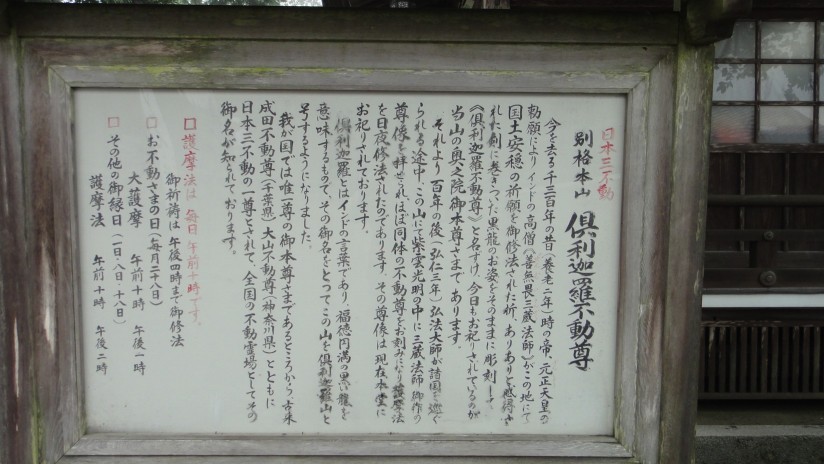 日本三不動
別格本山 倶利迦羅不動尊
今を去る千三百年の昔（養老二年）時の帝、元正天皇の
勅願によりインドの高僧（善無畏三蔵法師）がこの地にて
国土安穏の祈願を御修法された折、ありありと感得さ
れた剣に巻きついた黒龍のお姿をそのままに彫刻し
《倶利迦羅不動尊》と名ずけ、今日もお祀りされているのが
当山の奥之院御本尊さまであります。
それより一百年の後（弘仁三年）弘法大師が諸国を巡ぐ
られる途中、この山にて紫雲光明の中に三蔵法師御作の
尊像を拝せられ、ほぼ同体の不動尊をお刻みになり護摩法
を日夜修法されたのであります。その尊像は現在本堂に
お祀りされております。
倶利迦羅とはインドの言葉であり、福徳円満の黒い龍を
意味するもので、その御名をとってこの山を倶利迦羅山と
号するようになりました。
我が国では唯一尊の御本尊さまであるところから古来
成田不動尊（千葉県）大山不動尊（神奈川県）とともに
日本三不動の一尊とされて、全国の不動霊場としてその
御名が知られております。
□ 護摩法は 毎日 午前十時です。
御祈祷は 午後四時まで御修法
□ お不動さまの日（毎月二十八日）
大護摩 午前十時 午後一時
□ その他の御縁日（一日・八日・十八日）
護摩法 午前十時 午後二時